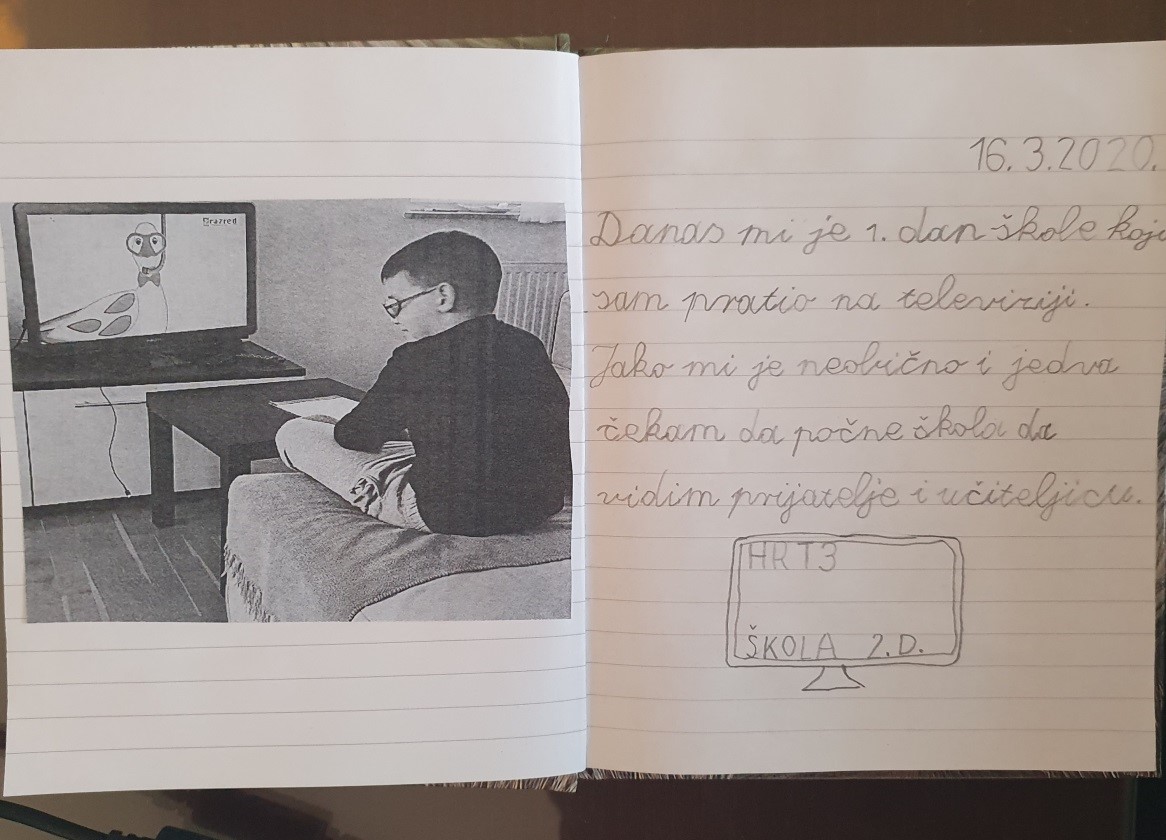 Brazred
16.3.2020.
Danas mi je 1. dan škole koju
sam pratio na televiziji.
Jako mi je neobično i jedva
čekam da počne škola da
vidim prijatelje i učiteljicu.
HRT3
ŠKOLA 2.D.